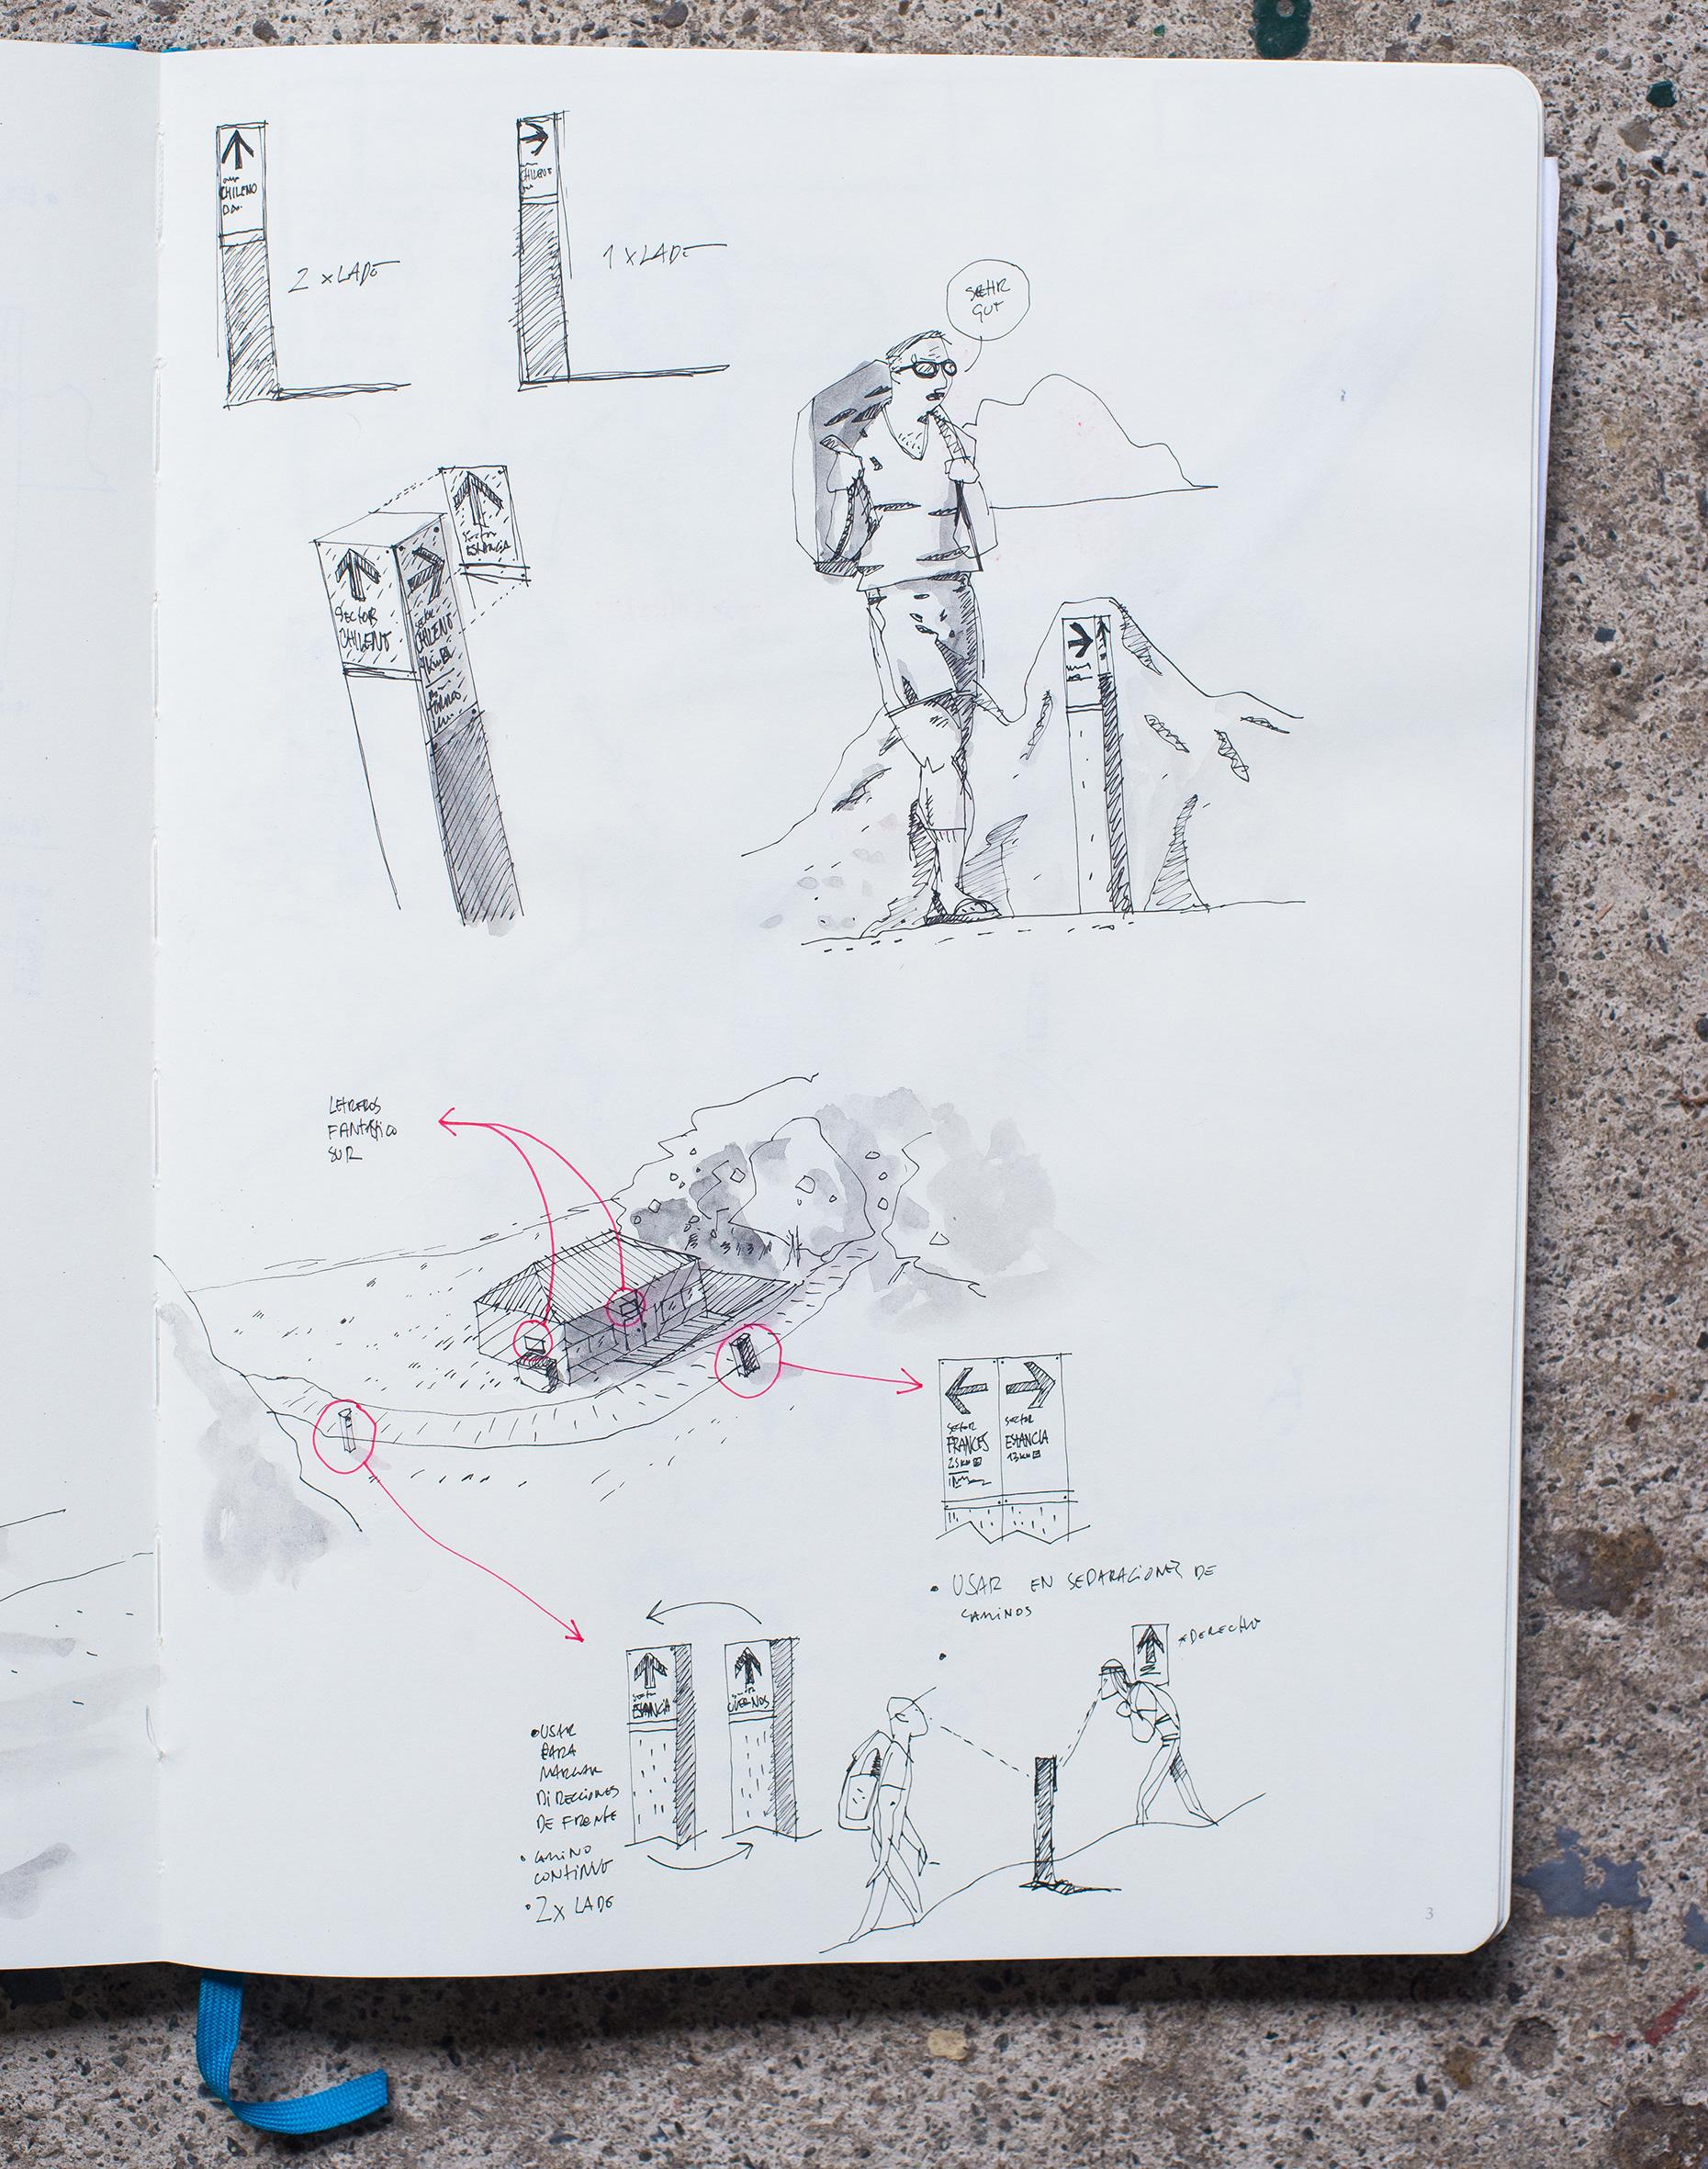 CHILENO
2 x LADO
CHILENO
1 x LADO
SEHR
GUT
SECTOR
ESTANCIA
SECTOR
CHILENO
SECTOR
CHILENO
LETREROS
FANTASTICO
SUR
SECTOR
FRANCES
2.5 KM
SECTOR
ESTANCIA
13 KM
• USAR EN SEPARACIONES DE
CAMINOS
SECTOR
ESTANCIA
CUERNOS
• USAR
PARA
MARCAR
DIRECCIONES
DE FRENTE
• CAMINO
CONTINUO
• 2x LADO
DERECHO
3